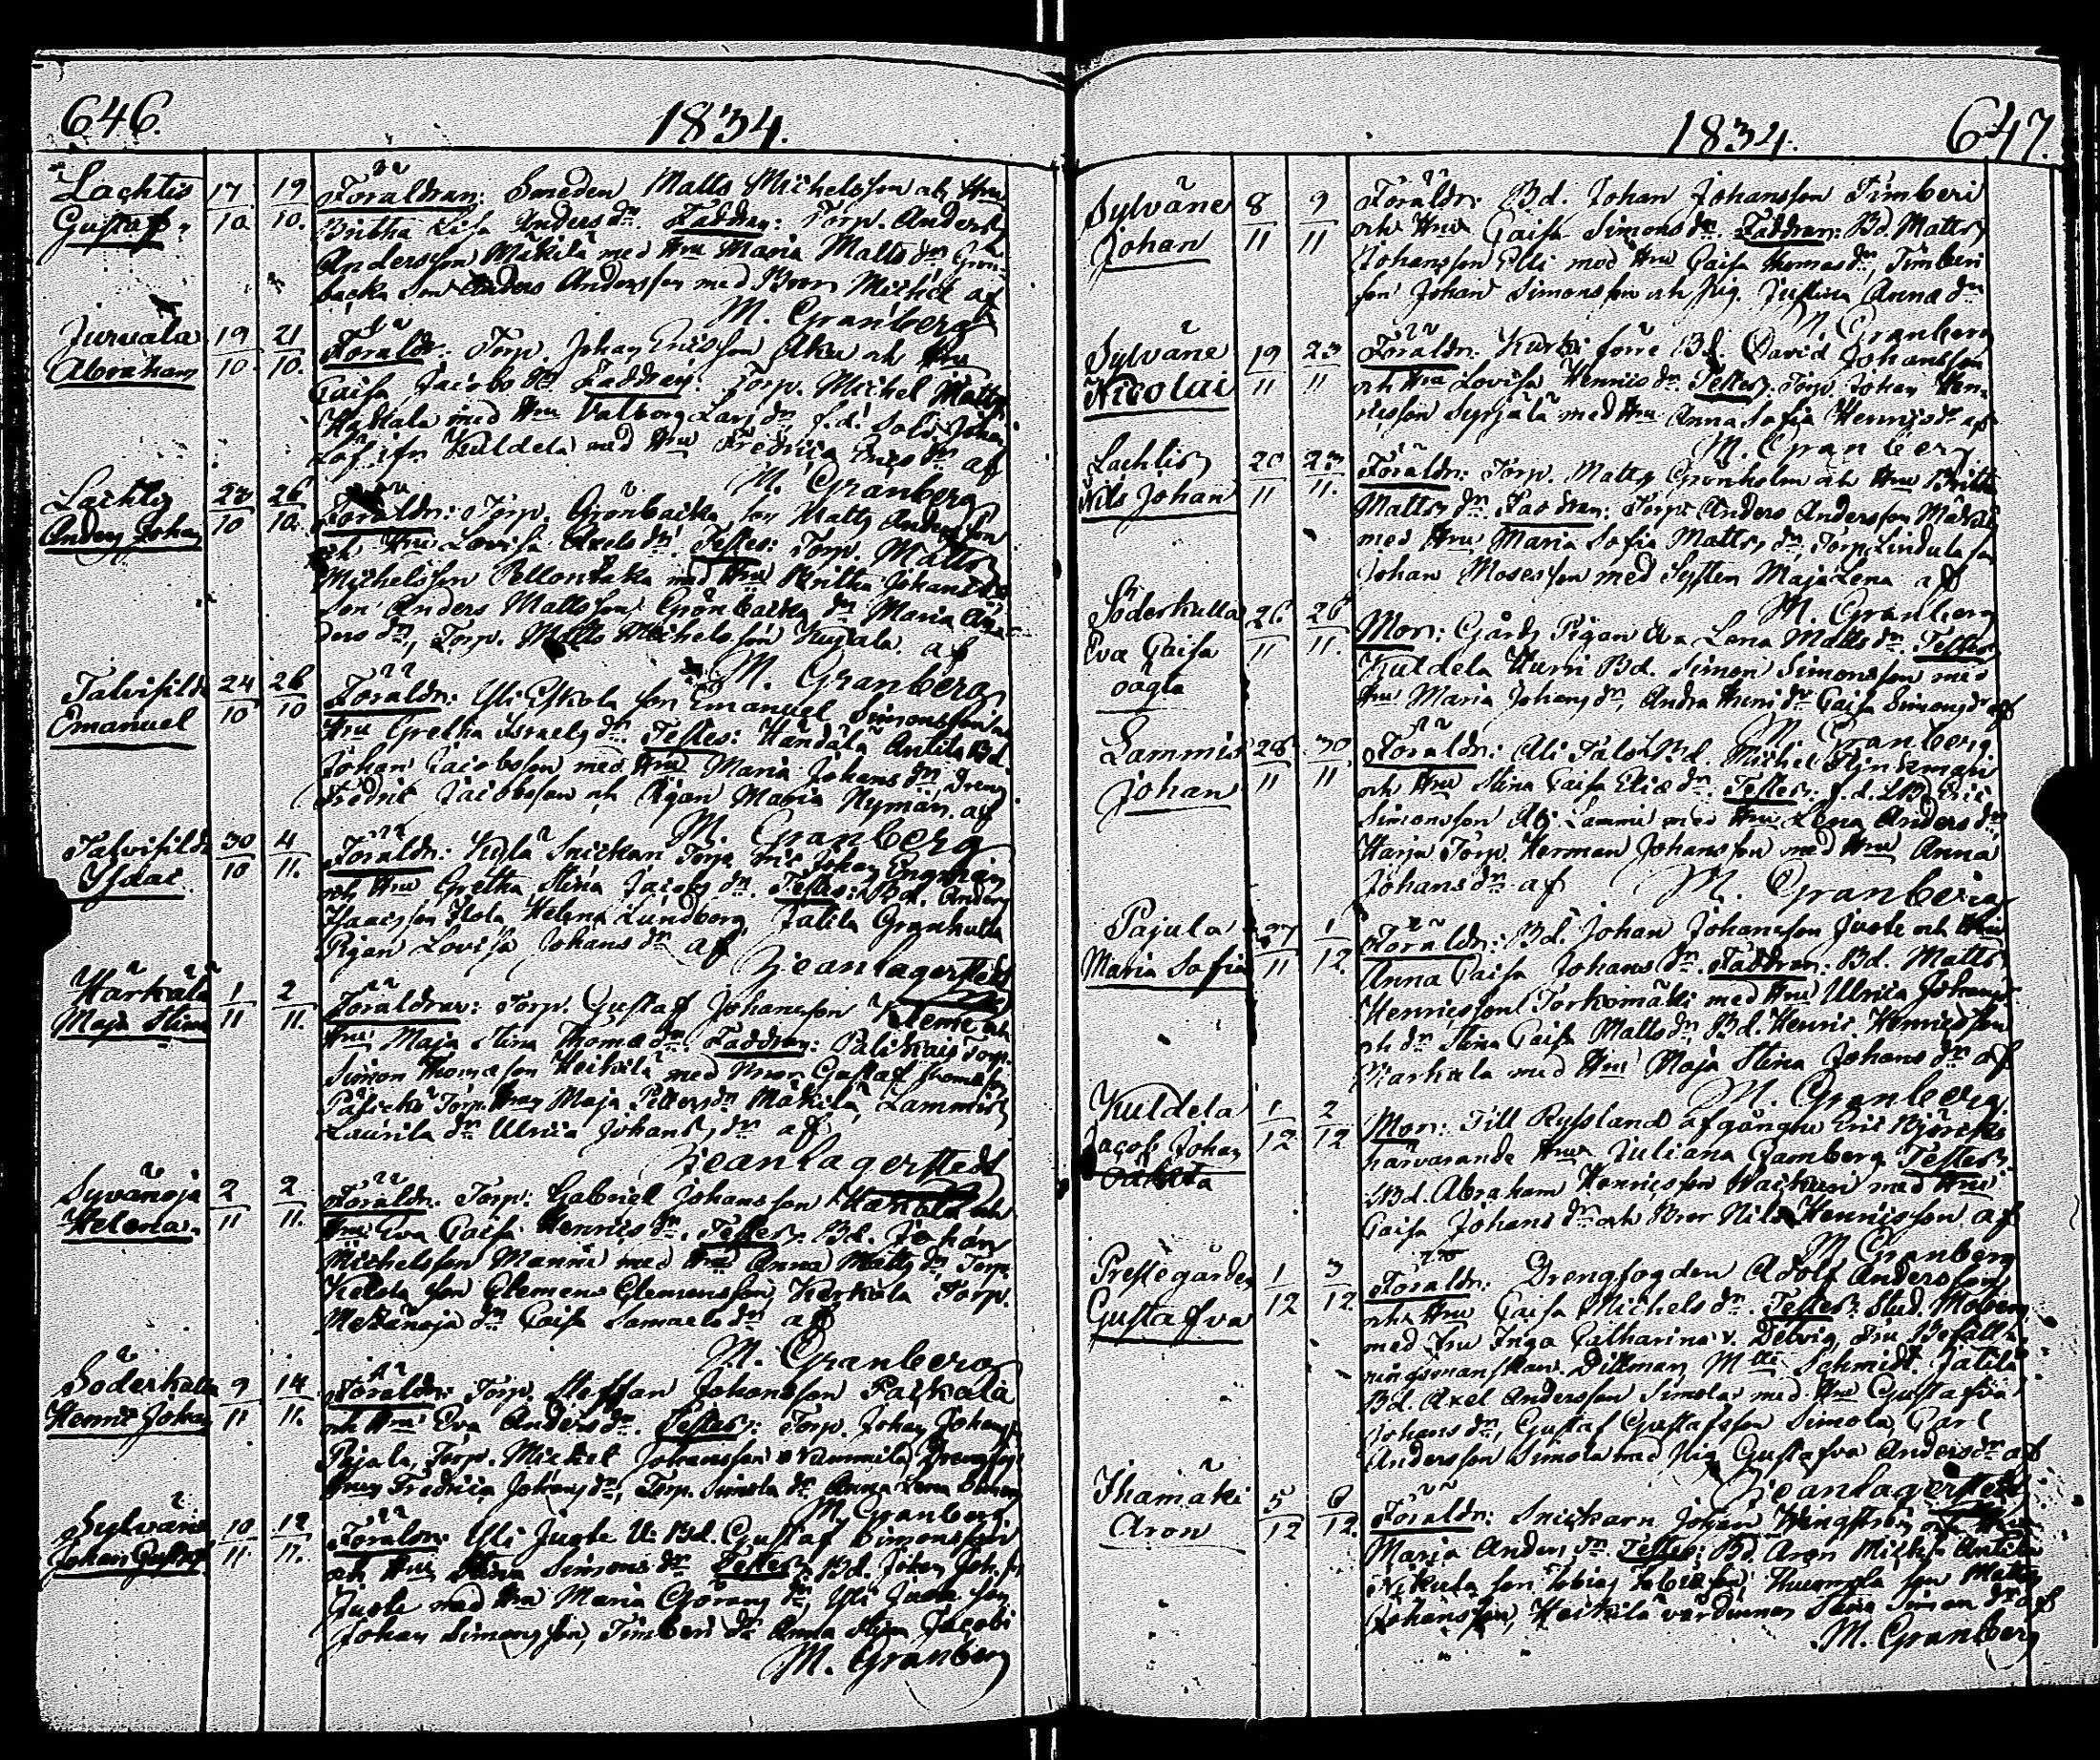 646.
1834.
Lachtis
Gustaf
17/10
19/10.
Föräldrar: Smeden Matts Michelsson och Hru
Britha Lisa Anders dr. Faddrar: Torp. Anders
Andersson Mäkilä med Hru Maria Matts dr Grön-
backa Son Anders Andersson med Bror Michel af
M. Granberg
Jurvala
Abraham
19/10.
21/10.
Föräldr: Torp. Johan Ericsson och Hru
Caisa Jacobs dr Faddrar: Torp. Michel Matts
med Hru Valborg Lars dr f.d. Sold. Johan
Löf ifr. Kuldela med Hru Fredrica Erics dr af
M. Granberg
Lachtis
Anders Johan
23/10
26/10.
Föräldr: Torp. Grönbacka son Matts Andersson
och Hru Lovisa Axels dr. Testes: Torp. Matts
Michelsson Pellonkaka med Hru Britha Johans dr
Son Anders Mattsson Grönbacka dr Maria An-
ders dr, Torp. Matts Michelsson Kujala. af
M. Granberg
Talvisilda
Emanuel
24/10
26/10
Föräldr: Yli Eskola son Emanuel Simonsson och
Hru Gretha Israels dr. Testes: Händälä Antila Bd.
Johan Jacobsson med Hru Maria Johans dr, Dreng
Fredric Jacobsson och Pigan Maria Nyman. af
M. Granberg
Talvisilda
Isaac
30/10
4/11.
Föräldr: Kylä Snickar Torp. Johan Engman
och Hru Gretha Stina Jacobs dr. Testes: Bd. Anders
Isaacsson Isola Helena Lundborg, Jatila Granhulta
Pigan Lovisa Johans dr af
Jean Lagerstedt
Härkälä
Maja Stina
1/11
2/11.
Föräldrar: Torp. Gustaf Johansson Kleme och
Hru Maja Stina Thomæ dr. Faddrar: Palikais Torp.
Simon Thomæson Heikilä med Bror Gustaf Thomæson
Torp. Hru Maja Petters dr Mäkilä, Lammis
Laurila dr Ulrica Johans dr af
Jean Lagerstedt
Syvänoja
Helena
2/11
2/11.
Föräldr: Torp: Gabriel Johansson Hakola och
Hru Eva Caisa Henrics dr. Testes: Bd. Johan
Michelsson Manni med Hru Anna Matts dr, Torp.
Kelola son Clemens Clemensson, Kerkola Torp.
Metsänoja dr Caisa Samuels dr af
M. Granberg
Söderkulla
Henric Johan
9/11
14/11.
Föräldr: Torp. Staffan Johansson Paikala
och Hru Eva Anders dr. Testes: Torp. Johan Johanss.
Pajala, Torp. Michel Johansson Rammila, Drengfog-
Hru Fredrica Johans dr, Torp. Simola dr Anna Lena Simons
M. Granberg
Sylväne
Johan Gustaf
10/11.
12/11.
Föräldr: Yli Juote U. Bd. Gustaf Simonsson
och Hru Stina Simons dr Testes: Bd. Johan Joh.s:
Juote med Hru Maria Görans dr, Yli Juote son
Johan Simonsson, Timberi dr Anna Stina Jacobi
M. Granberg
1834.
647.
Sylväne
Johan
8/11
9/11
Föräldr: Bd. Johan Johansson Timberi
och Hru Caisa Simons dr. Faddrar: Bd. Matts
Johansson Elli med Hru Caisa Thomas dr, Timberi
son Johan Simonsson och Pig. Justina Anna dr
M. Granberg
Sylväne
Nicolai
19/11
23/11
Föräldr: Kurki förre Bd. David Johansson
och Hru Lovisa Henrics dr. Testes: Torp. Johan Hen-
ricsson Syrjälä med Hru Anna Sofia Henrics dr af
M. Granberg
Lachtis
Nils Johan
20/11
23/11.
Föräldr: Torp. Matts Grönholm och Hru Britta
Matts dr. Faddrar: Torp. Anders Andersson Mäkilä
med Hru Maria Sofia Matts dr, Torp. Lindula son
Johan Mosesson med Systern Maja Lena af
M. Granberg
Söderkulla
Eva Caisa
oägta
26/11
26/11.
Mor: Gårds Pigan Eva Lena Matts dr. Testes
Kuldela Hurri Bd. Simon Simonsson med
Hru Maria Johans dr, Andra Hurri dr Caisa Simons dr af
M. Granberg
Lammis
Johan
28/11
30/11
Föräldr: Ali Talo Bd. Michel
och Hru Stina Caisa Eliæ dr. Testes: f.d. Bd. Eric
Simonsson Ali Lammi med Hru Lena Anders dr,
Harja Torp. Herman Johansson med Hru Anna
Johans dr af M. Granberg
Pajula
Maria Sofia
27/11
1/12.
Föräldr: Bd. Johan Johansson Juote och Hru
Anna Caisa Johans dr. Faddrar: Bd. Matts
Henricsson Torkomäki med Hru Ulrica Johans
och dr Stina Caisa Matts dr, Bd. Henric Henricsson
Markula med Hru Maja Stina Johans dr af
M. Granberg
Kuldela
Jacob Johan
oäkta
1/12
2/12
Mor: Till Ryssland afgångne Eric Björcks
härvarande Hru Juliana Gamberg Testes:
Bd. Abraham Henricsson med Hru
Caisa Johans dr och Bror Nils Henricsson af
M. Granberg
Prestegården
Gustafva
1/12
3/12.
Föräldr: Drengfogden Adolf Andersson
och Hru Caisa Michels dr. Testes: Stud. Moberg
med Fru Inga Catharina v. Delwig, Fru Befall-
ningsmanskan Dillman, M:lle Schmidt. Jatila
Bd. Axel Andersson Simola med Hru Gustafva
Johans dr, Gustaf Gustafsson Simola, Carl
Andersson Simola med Pig. Gustafva Anders dr af
Jean Lagerstedt
Ihamäki
Aron
5/12
6/12.
Föräldr: Snickarn Johan och Hru
Maria Anders dr. Testes: Bd. Aron Antila
Nikula son Tobias Tobiasson, son Matts
Johansson, Heikilä värdinnan Stina Simons dr af
M. Granberg